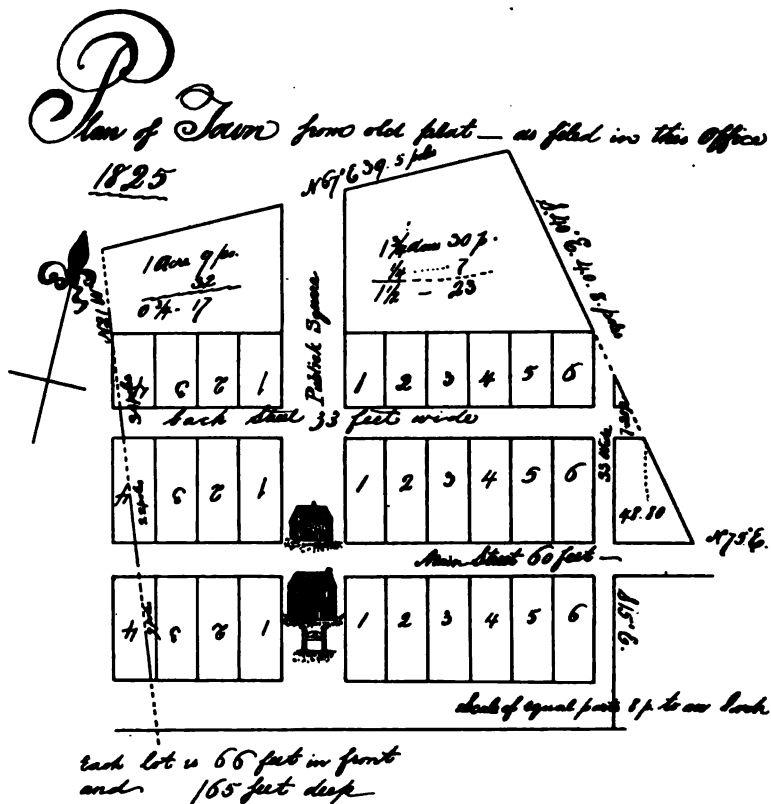 Plan of Town from old plat — as filed in this Office
1825
N 67° E 39.5 pls
S. 40. E. 40. 8. poles
1 Acre 9 ps.
32
0 3/4 - 17
1 3/4 Acres 30 p.
1/4 ...... 7
1 1/2 — 23
Publick Square
4 3 2 1
1 2 3 4 5 6
back Street 33 feet wide
4 3 2 1
1 2 3 4 5 6
33 wide
48.80
N 75° E.
Main Street 60 feet —
4 3 2 1
1 2 3 4 5 6
S 15° E.
Scale of equal parts 8 p. to an Inch
Each lot is 66 feet in front
and 165 feet deep